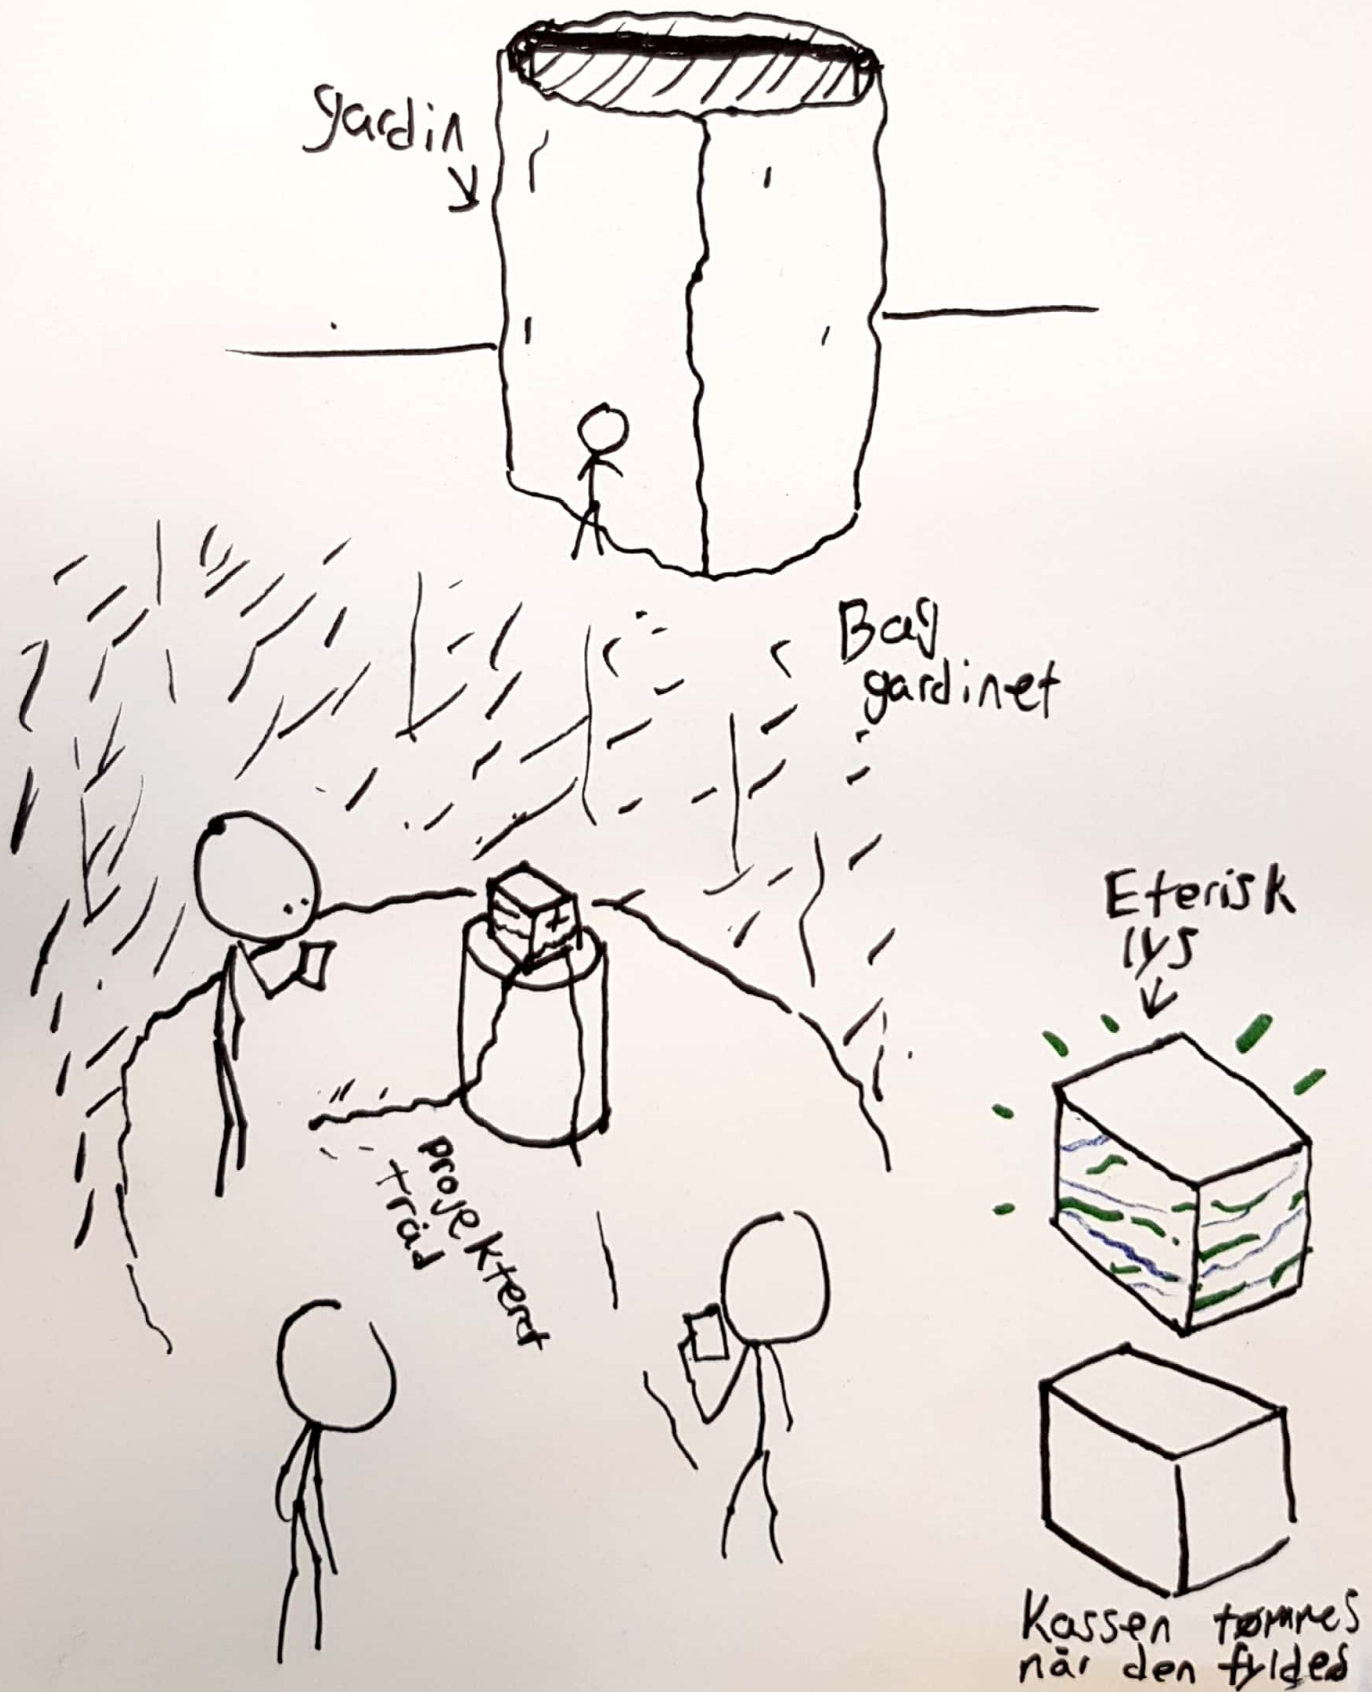 gardin
Bag
gardinet
Eterisk
lys
projekteret
tråd
Kassen tømmes
når den fyldes